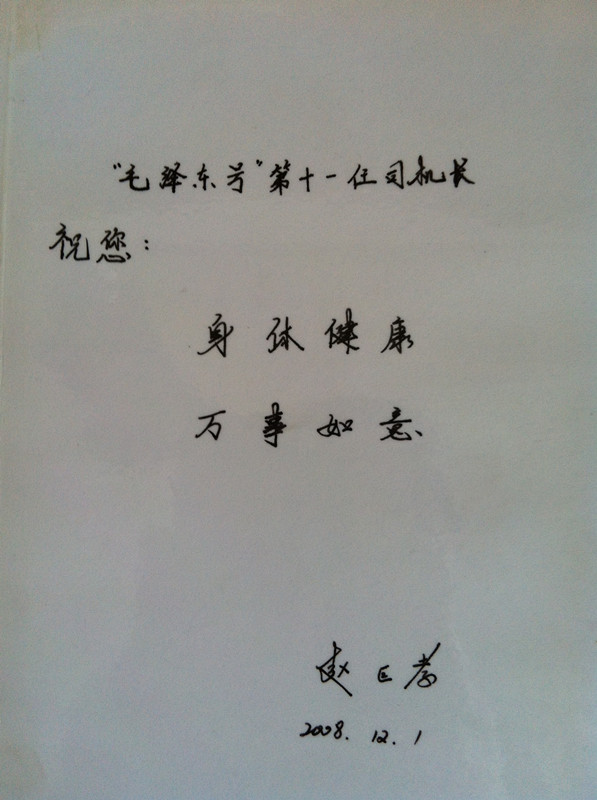 “毛泽东号”第十一任司机长
祝您：
身体健康
万事如意
赵巨孝
2008.12.1